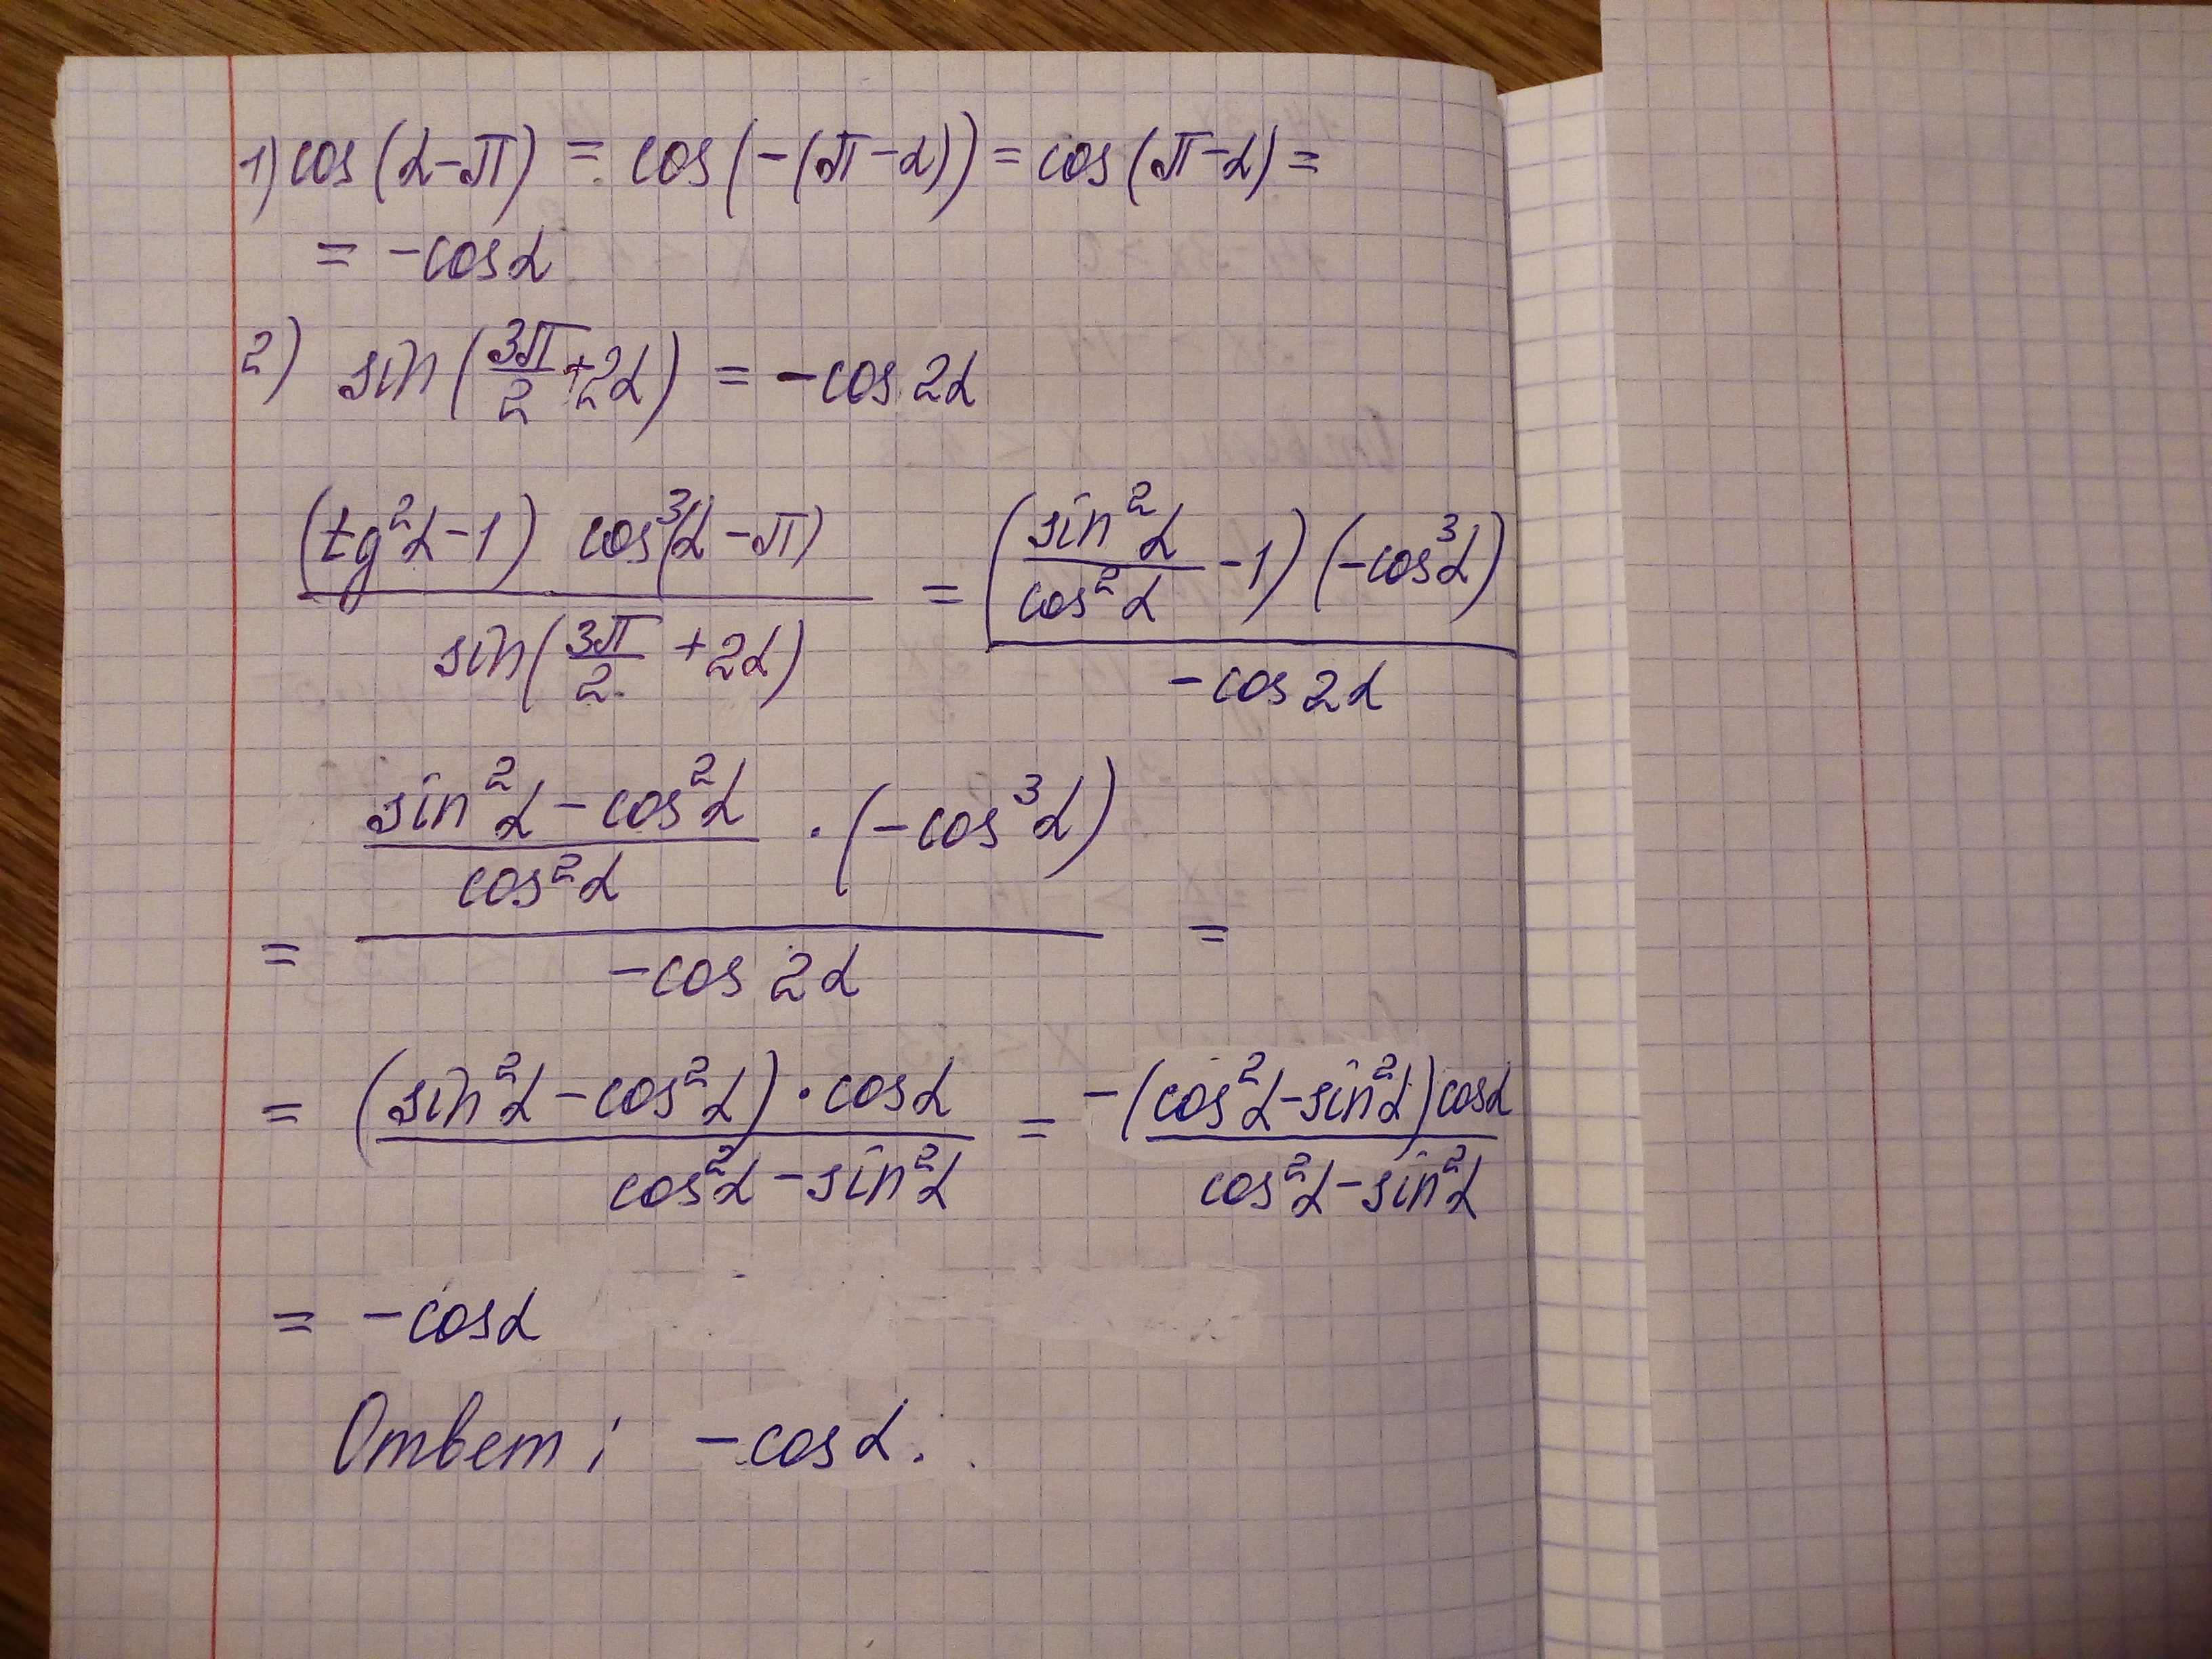 1) cos(α-π) = cos(-(π-α)) = cos(π-α) =
= -cosα
2) sin(3π/2+2α) = -cos2α
(tg²α-1) cos³(α-π) / sin(3π/2 +2α) = (sin²α/cos²α -1)(-cos³α) / -cos2α
= (sin²α-cos²α)/cos²α · (-cos³α) / -cos2α =
= (sin²α-cos²α)·cosα / cos²α-sin²α = -(cos²α-sin²α)cosα / cos²α-sin²α
= -cosα
Ответ: -cosα.